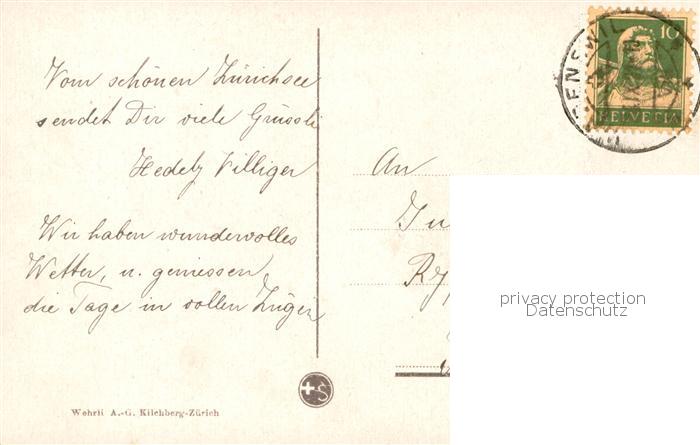 Vom schönen Zürichsee
sendet Dir viele Grüssli
Hedely Villiger
Wir haben wundervolles
Wetter, u. geniessen
die Tage in vollen Zügen
Wehrli A.-G. Kilchberg-Zürich
An
10
HELVETIA
ENSWIL
privacy protection
Datenschutz